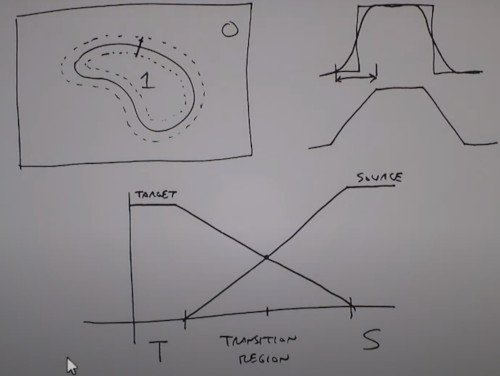 O
1
TARGET
SOURCE
T
TRANSITION
REGION
S